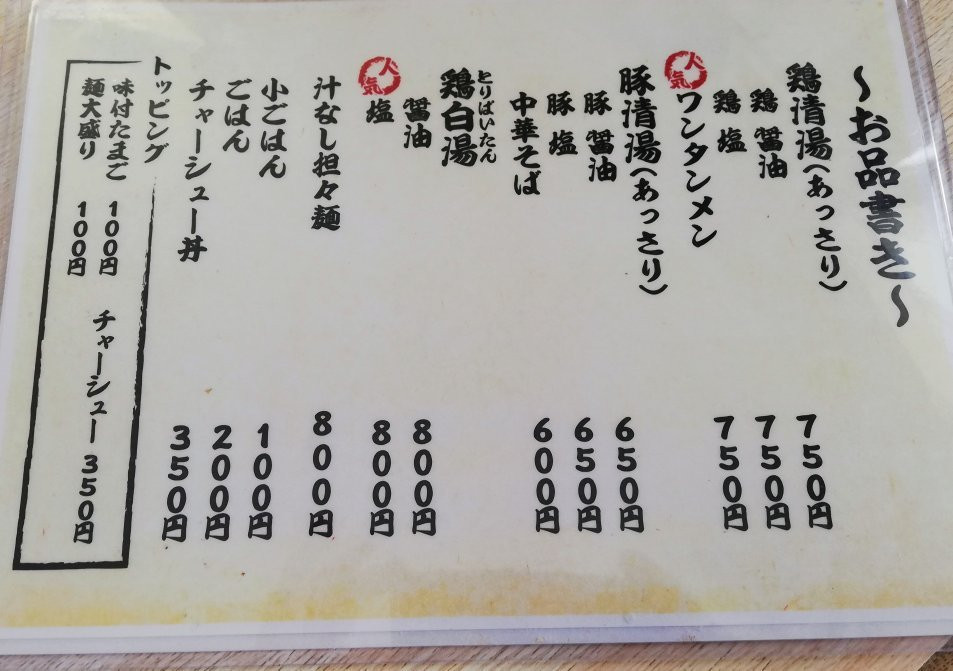 ～お品書き～
鶏清湯(あっさり)
鶏 醤油 750円
鶏 塩 750円
人気 ワンタンメン 750円
豚清湯(あっさり)
豚 醤油 650円
豚 塩 650円
中華そば 600円
とりぱいたん
鶏白湯
醤油 800円
人気 塩 800円
汁なし担々麺 800円
小ごはん 100円
ごはん 200円
チャーシュー丼 350円
トッピング
味付たまご 100円
麺大盛り 100円
チャーシュー 350円